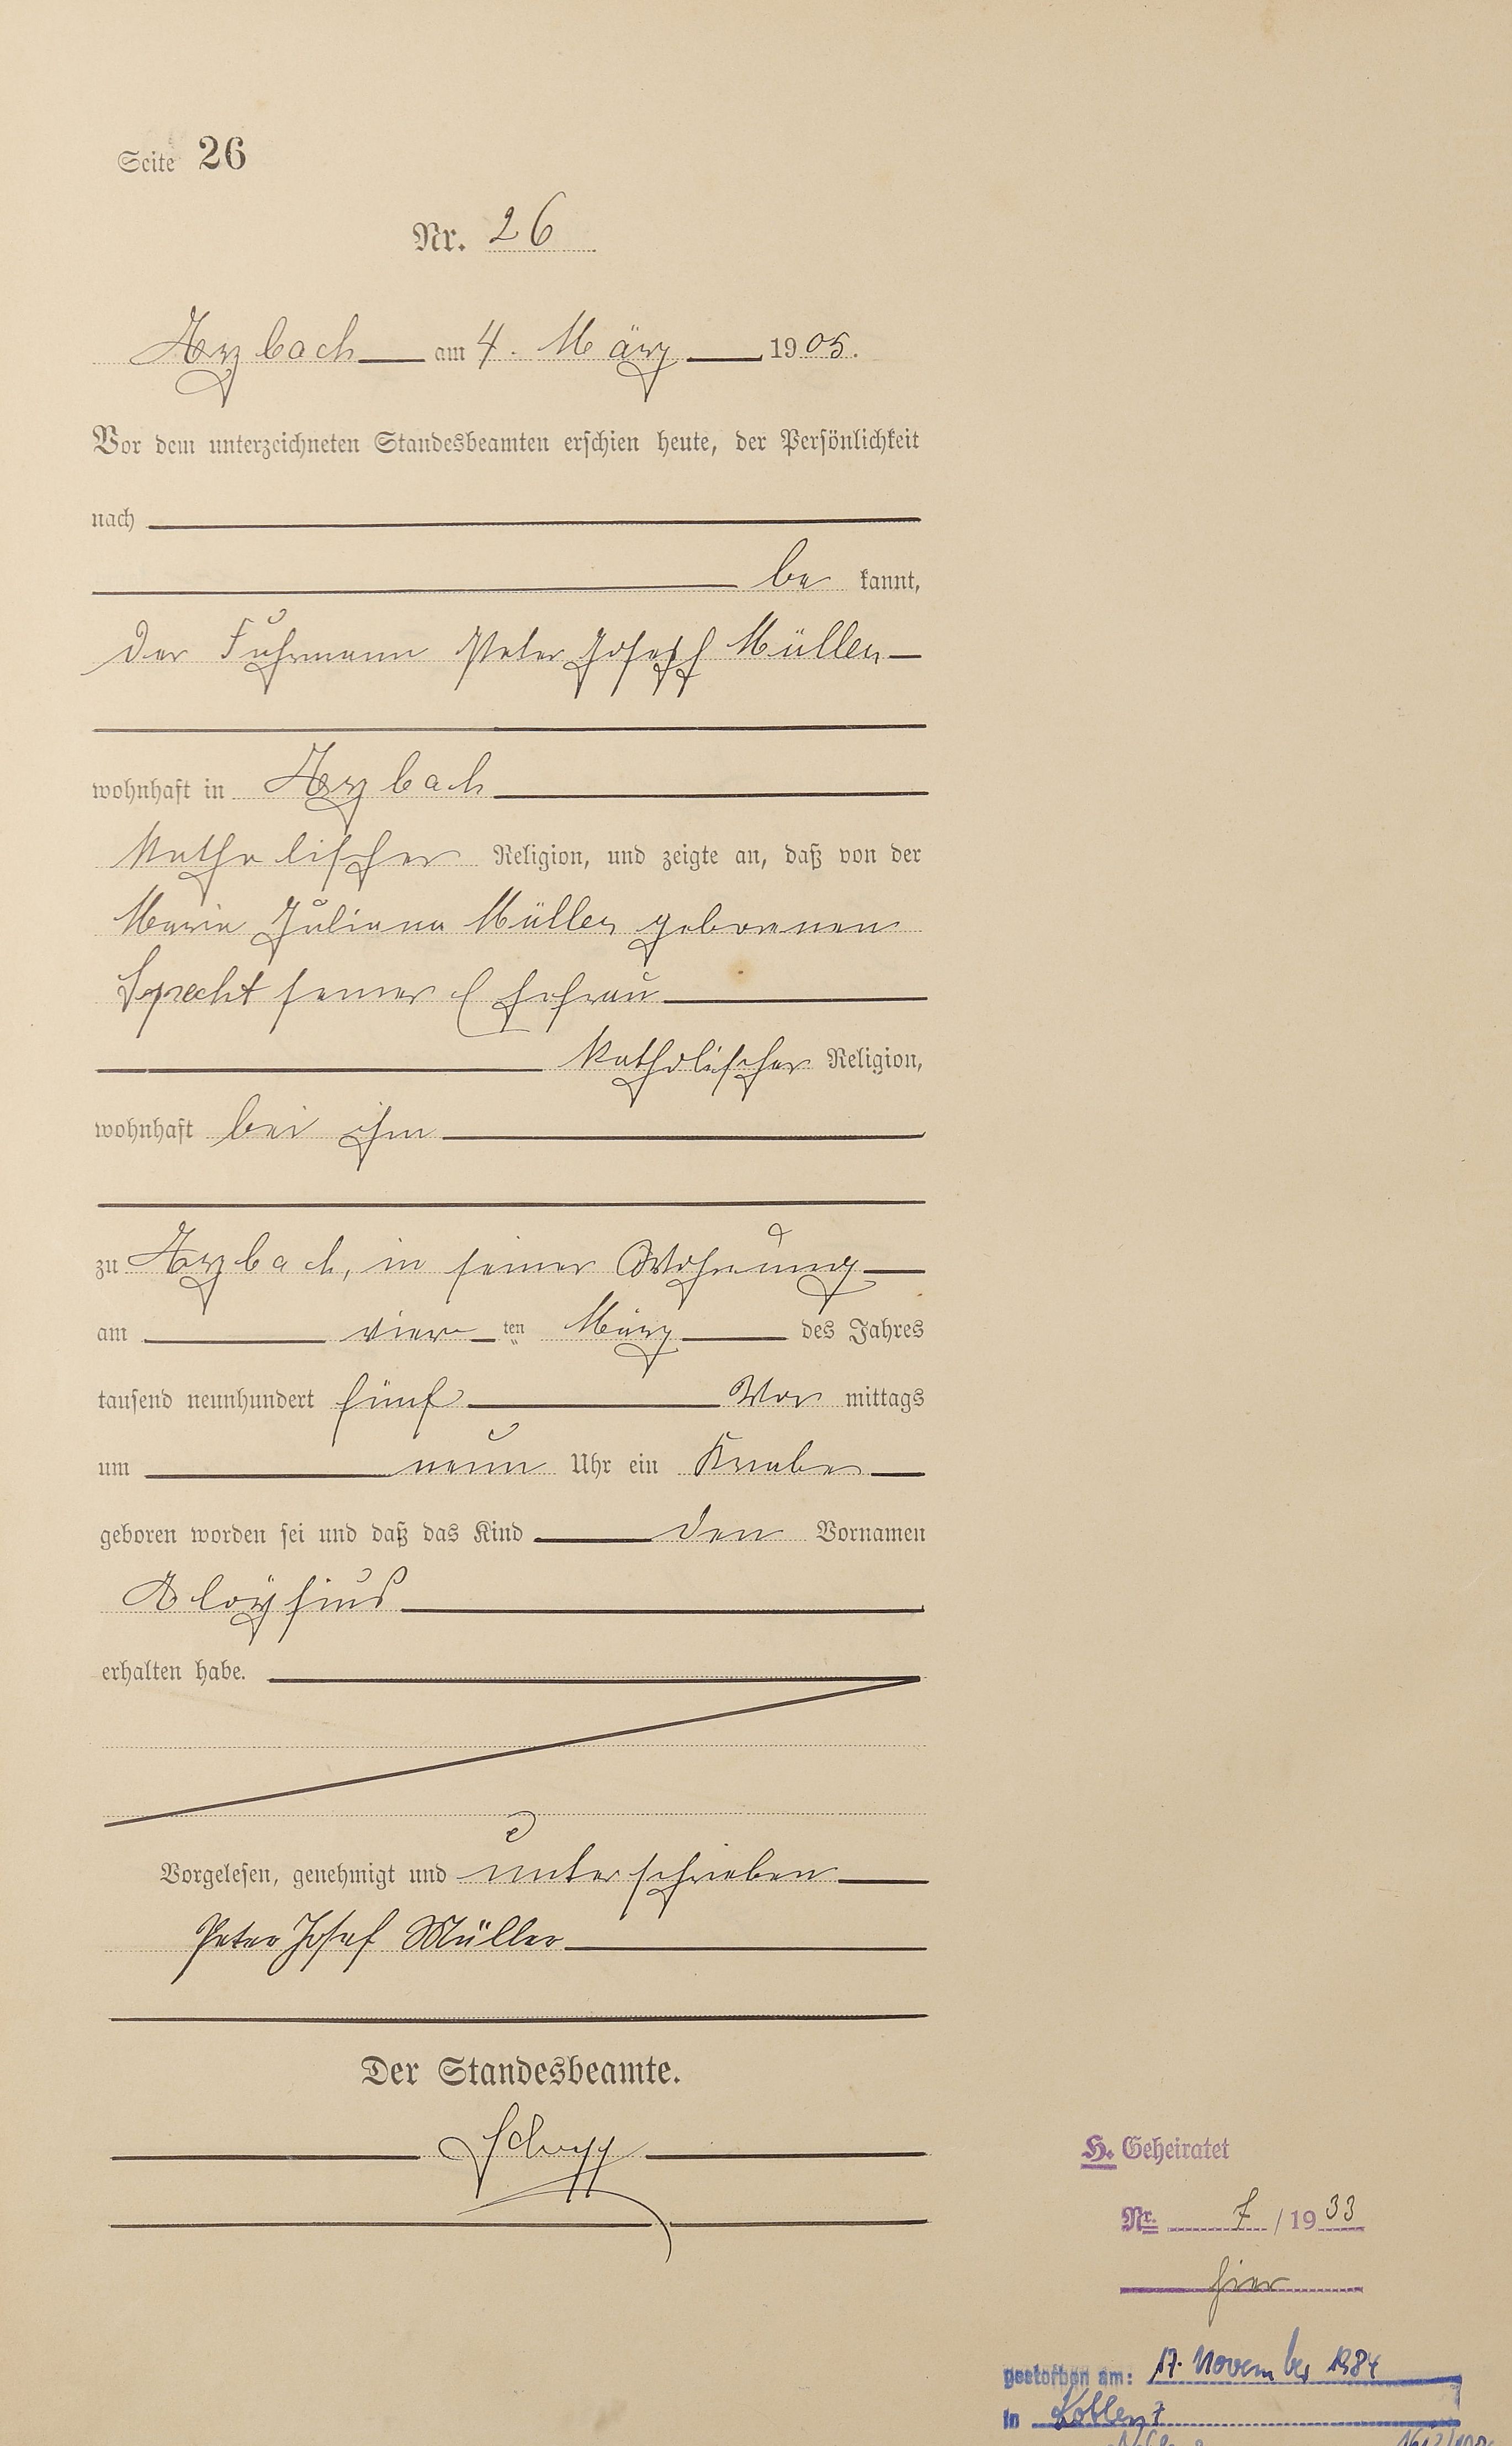 Seite 26
Nr. 26
Arzbach am 4. März 1905.
Vor dem unterzeichneten Standesbeamten erschien heute, der Persönlichkeit
nach
be kannt,
der Fuhrmann Peter Joseph Müller
wohnhaft in Arzbach
katholischer Religion, und zeigte an, daß von der
Maria Juliana Müller geborenen
Specht seiner Ehefrau
katholischer Religion,
wohnhaft bei ihm
zu Arzbach, in seiner Wohnung
am vier ten März des Jahres
tausend neunhundert fünf Vor mittags
um neun Uhr ein Knabe
geboren worden sei und daß das Kind den Vornamen
Aloÿsius
erhalten habe.
Vorgelesen, genehmigt und unterschrieben
Peter Josef Müller
Der Standesbeamte.
H. Geheiratet
Nr. 7 / 1933
hier
gestorben am: 17. November 1984
in Koblenz